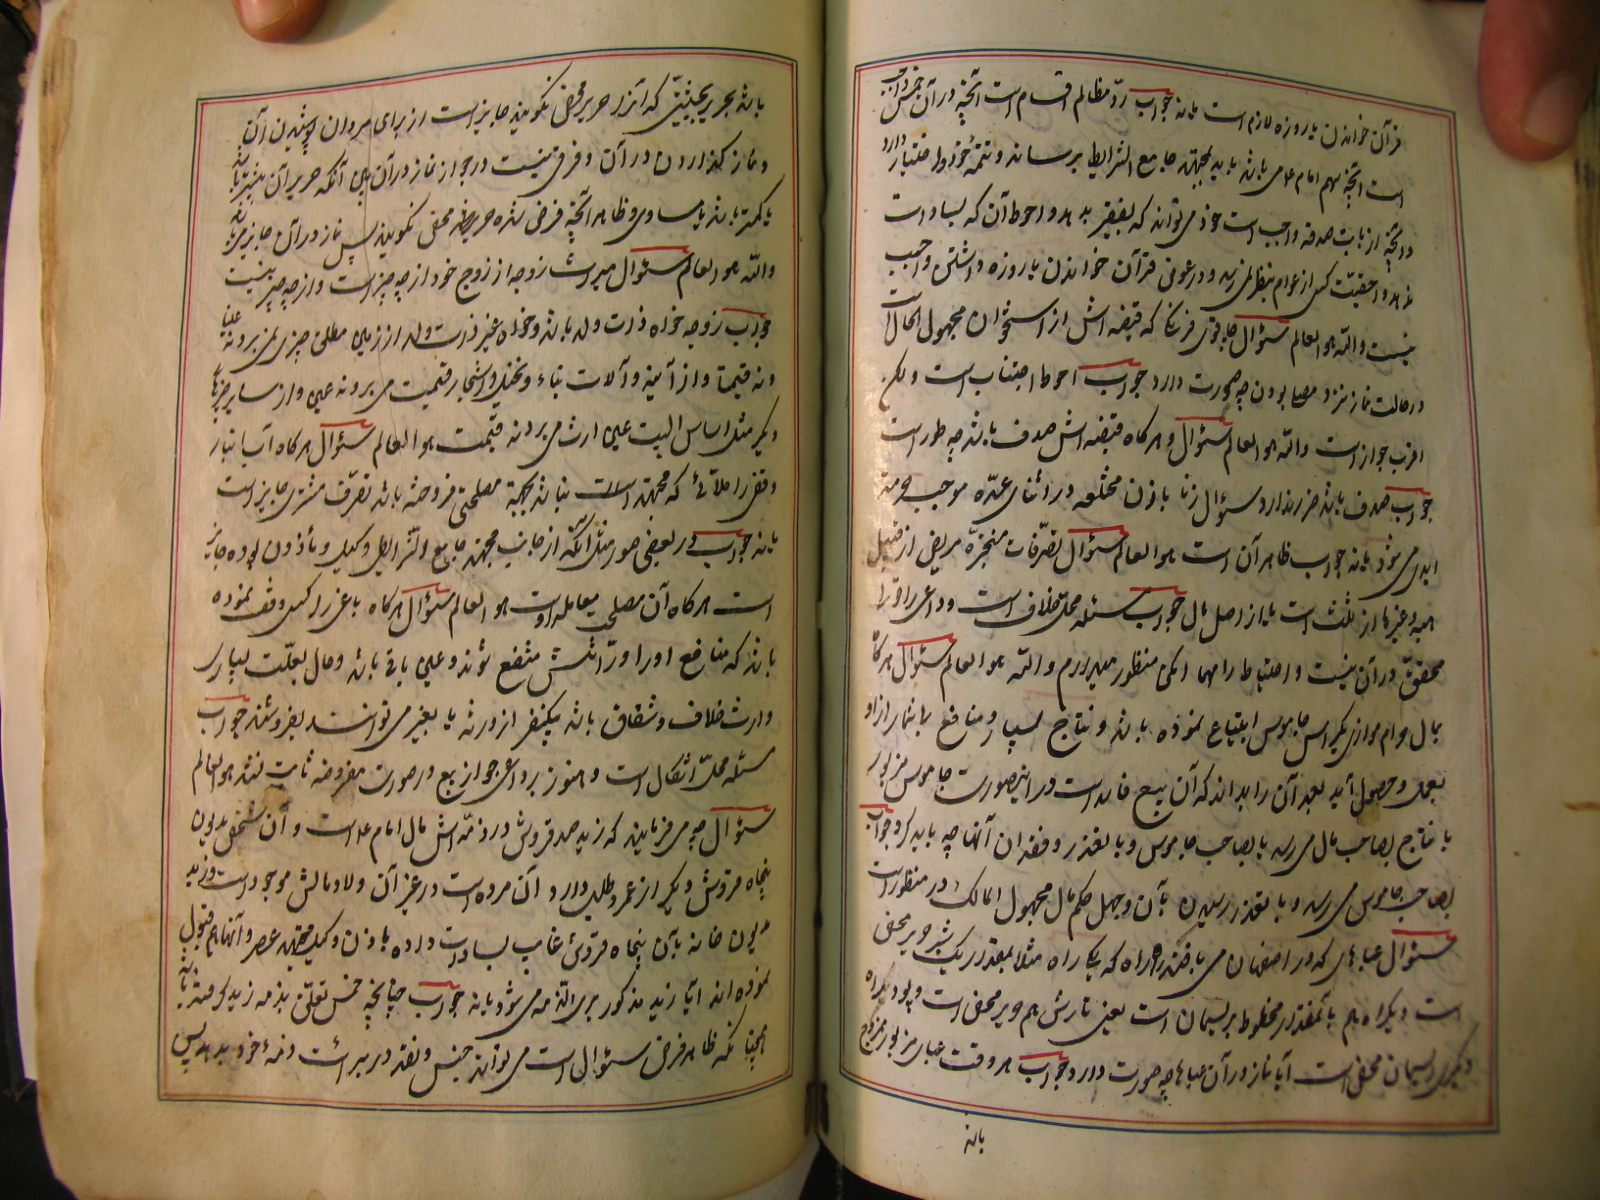 قرآن خواندن یا روزه لازم است یا نه جواب ردّ مظالم اقسام است آنچه در آن خمس واجب
است آنچه سهم امام علی باشد باید بمجتهد جامع الشرایط برساند و تتمه خود اختیار دارد
و آنچه از بابت صدقه واجب است خود می تواند که بفقیر بدهد و احوط آن که بسادات
ندهد و احقیت کسی از عوام بنظر نمی رسد و در عوض قرآن خواندن یا روزه داشتن واجب
نیست واللّه هو العالم سئوال چاقوی فرنگ که قبضه اش از استخوان مجهول الحال است
در حالت نماز نزد مصلی بودن چه صورت دارد جواب احوط اجتناب است ولکن
اقرب جواز است واللّه هو العالم سئوال و هر گاه قبضه اش صدف باشد چه طور است
جواب صدف باشد ضرر ندارد سئوال زنا با زن مختلعه در اثنای عدّه موجب حرمت
ابدی می شود یا نه جواب ظاهر آن است هو العالم سئوال تصرّفات منجّزه مریض از قبیل
هبه و غیرها از ثلث است یا از اصل مال جواب مسئله محل خلاف است و داعی را وقرا
محقق در آن نیست و احتیاط را مهما امکن منظور میدارم واللّه هو العالم سئوال هر گاه
بمال حرام موازی یکراس جاموس ابتیاع نموده باشد و نتاج بسیار و منافع بیشمار از او
بعمل و حصول آید بعد آن را بداند که آن بیع فاسد است در اینصورت جاموس مزبور
با نتاج بصاحب مال می رسد یا بصاحب جاموس و با تعذر و فقدان آنها چه باید کرد جواب
بصاحب جاموس می رسد و با تعذر رسیدن بآن وجهل حکم مال مجهول المالک در منظور است
سئوال عباهای که در اصفهان می بافند راه راه که یک راه مثلا بمقدار یک شبر حریر محض
است و یکراه هم بآنمقدار مخلوط بریسمان است یعنی تارش هم حریر محض است و پود یکراه
دیگری ریسمان محض است آیا نماز در آن عباها چه صورت دارد جواب هر وقت عبای مزبور ممزوج
باشد
باشد بحریر بحیثیتی که آنرا حریر محض نگویند جایز است از برای مردان پوشیدن آن
و نماز گذاردن در آن و فرقی نیست در جواز نماز در آن میان آنکه حریر آن بیشتر باشد
یا کمتر باشد یا مساوی و ظاهرا آنچه فرض شده حریر محض نگویند پس نماز در آن جایز باشد
واللّه هو العالم سئوال میراث زوجه از زوج خود از چه چیز است و از چه چیز نیست
جواب زوجه خواه ذات ولد باشد و خواه غیر ذات ولد از زمین مطلق چیزی نمی برد نه عینا
و نه قیمتا و از آبنیه و آلات بناء و نخیل و اشجار قیمت می برد نه عین و از سایر چیزها
دیگر مثل اساس البیت عین ارث می برد نه قیمت هو العالم سئوال هر گاه آسیا انبار
وقف را ملائی که مجتهد نباشد بجهة مصلحتی فروخته باشد تصرّف مشتری جایز است
یا نه جواب در بعضی صور مثل آنکه از جانب مجتهد جامع الشرایط وکیل و مأذون بوده جایز
است هر گاه آن مصلحی معامله او است هو العالم سئوال هر گاه باغی را کسی وقف نموده
باشد که منافع او را ورّاثش منتفع شوند و عین باقی باشد و حال بعلّت بسیاری
وارث خلاف و شقاق باشد یکنفر از ورثه یا بغیر می توانند بفروشند جواب
مسئله محلّ اشکال است و هنوز بر داعی جواز بیع در صورت مفروضه ثابت نشد هو العالم
سئوال چه می فرمایند که زید صد قروش در ذمّه اش مال امام علی است و آن شخص مدیون
پنجاه قروش دیگر از عمرو طلب دارد آن مرده است در غیر آن ولا ومالش موجود است وزید
مدیون خانه بآن پنجاه قروش غایب بسادات داده باذن وکیل مجتهد عصر و آنها هم قبول
نموده اند آیا زید مذکور بری الذّمه می شود یا نه جواب چنانچه خمس تعلّق بذمه زید گرفته باشد
همچنانکه ظاهر فرض سئوال است می تواند جنس و نقد در برائت ذمهٔ خود بدهد پس